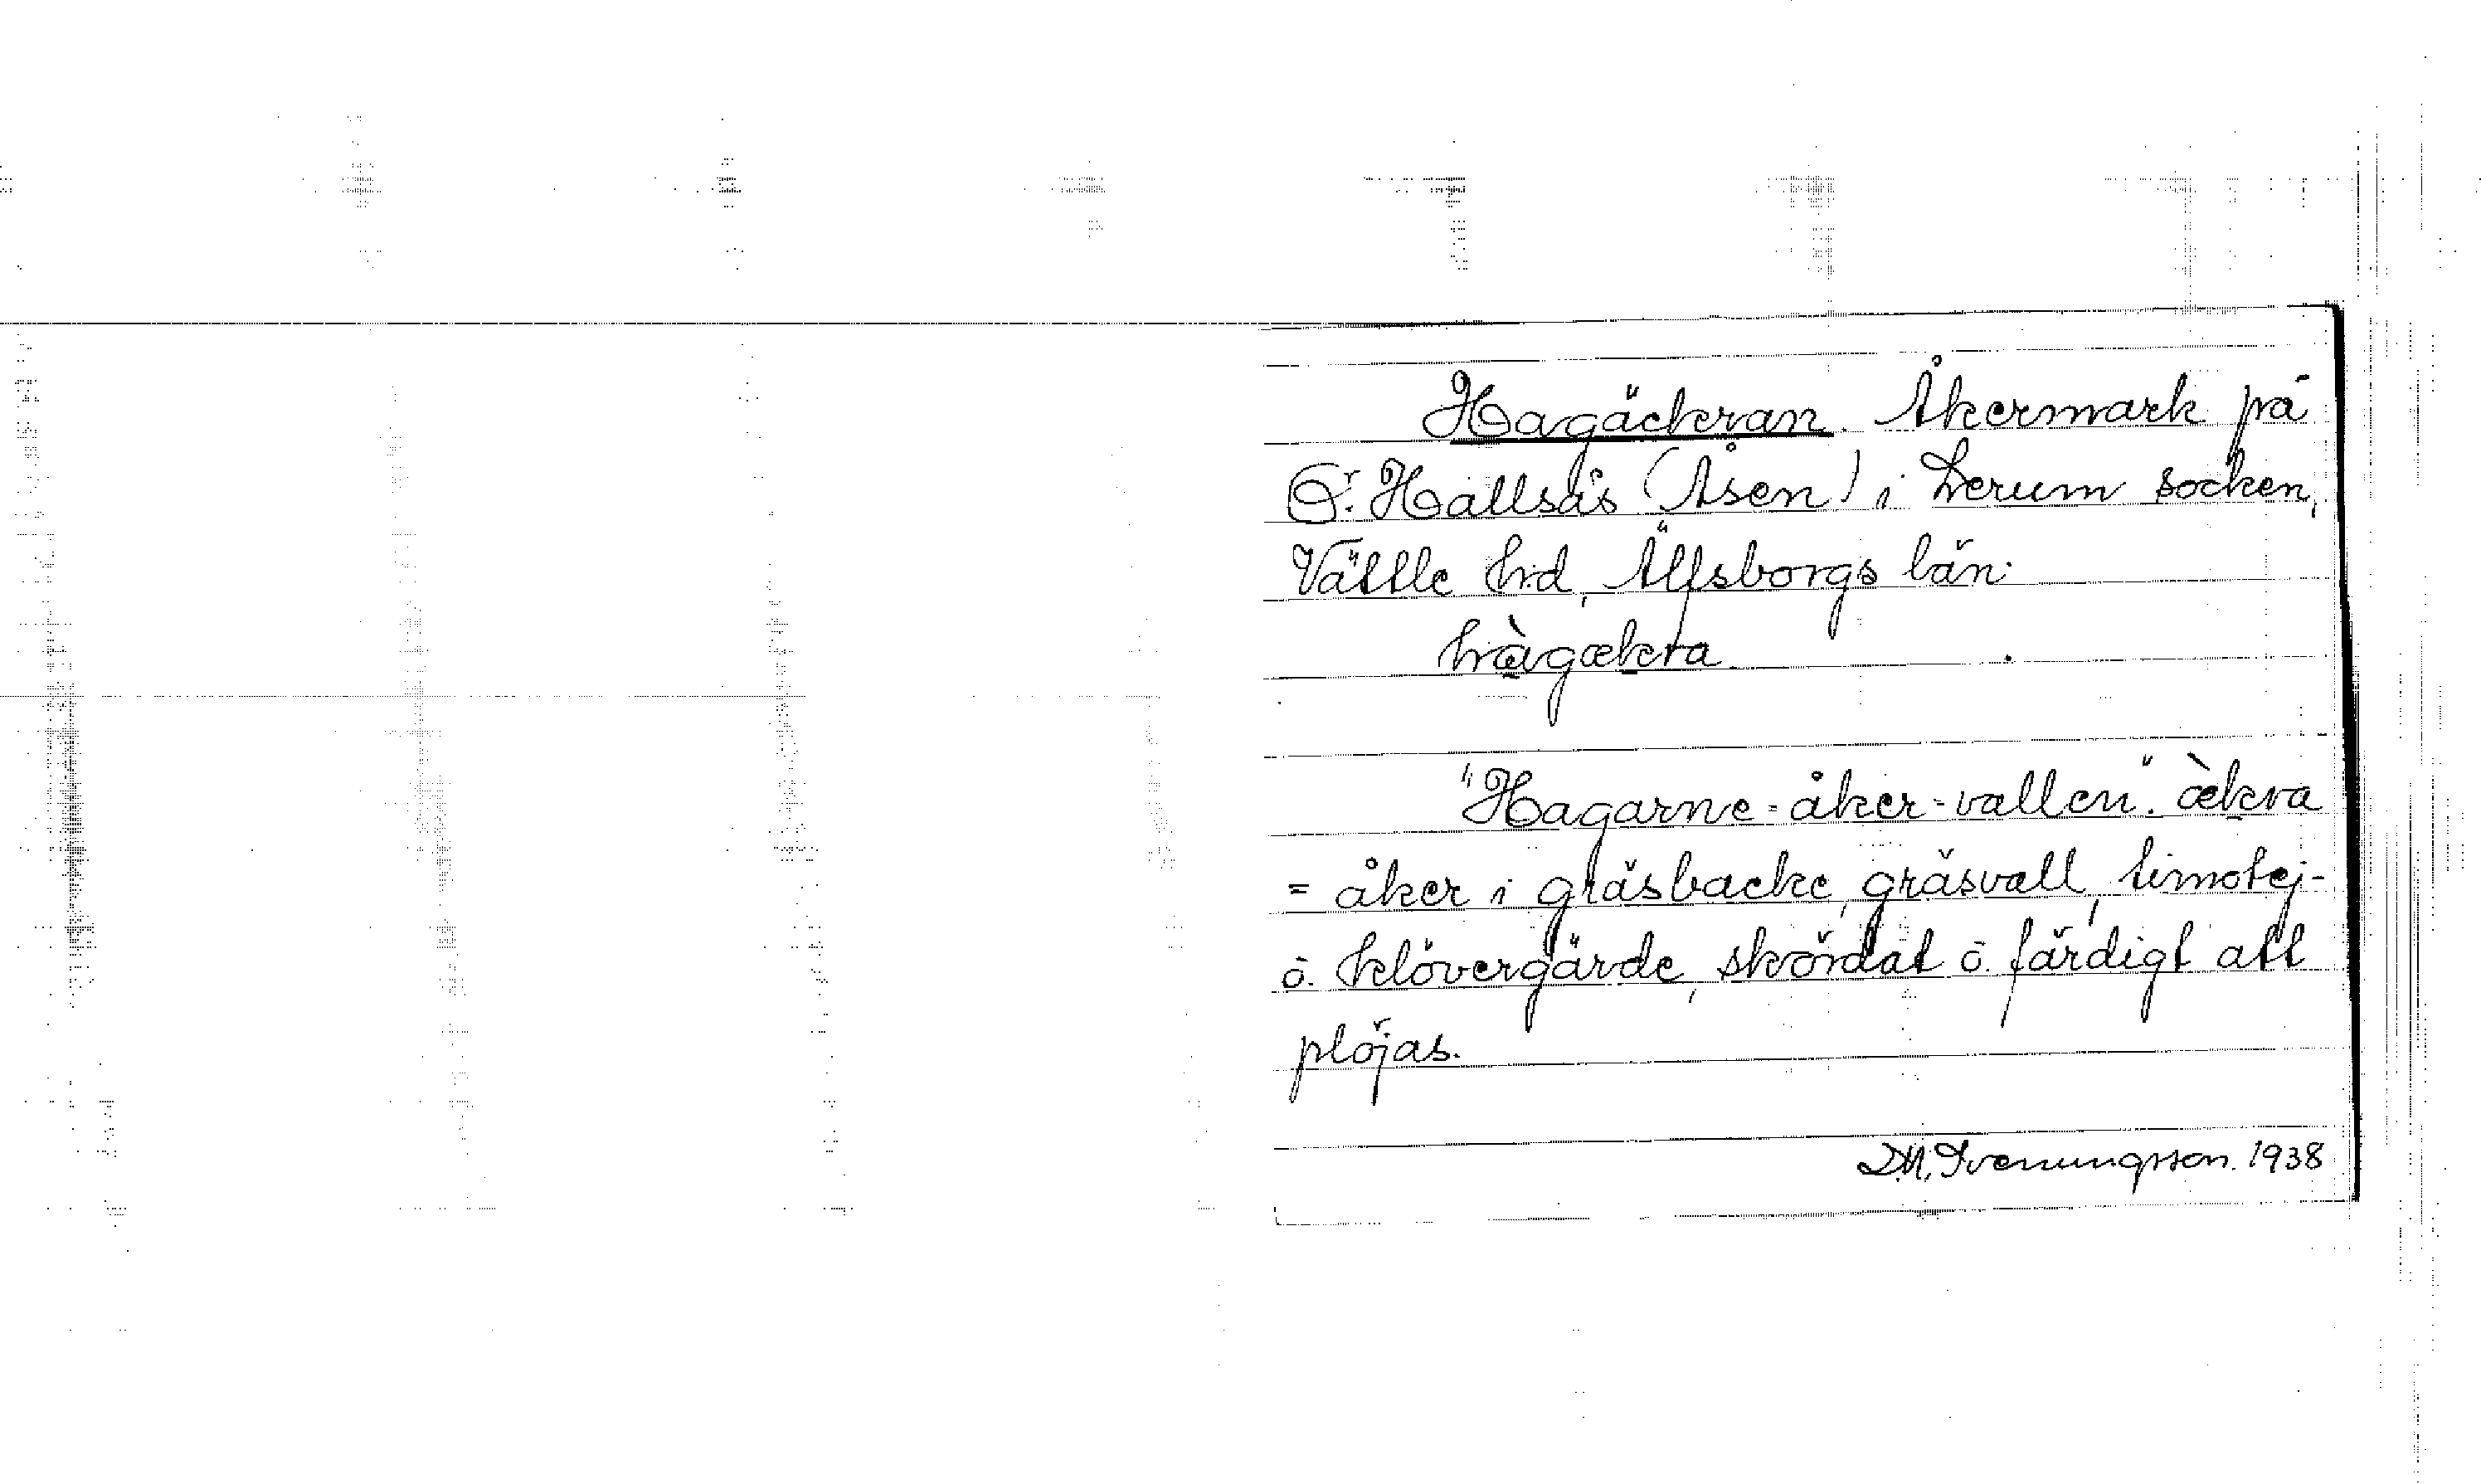 Hagäckran. Åkermark på
Ö. Hallsås (Åsen) i Lerum socken,
Vättle hd, Älfsborgs län.
hàgækra
"Hagarne-åker-vallen". ækra
= åker i gräsbacke, gräsvall, timotej-
o. klövergärde, skördat o. färdigt att
plöjas.
D.M. Svenungsson. 1938